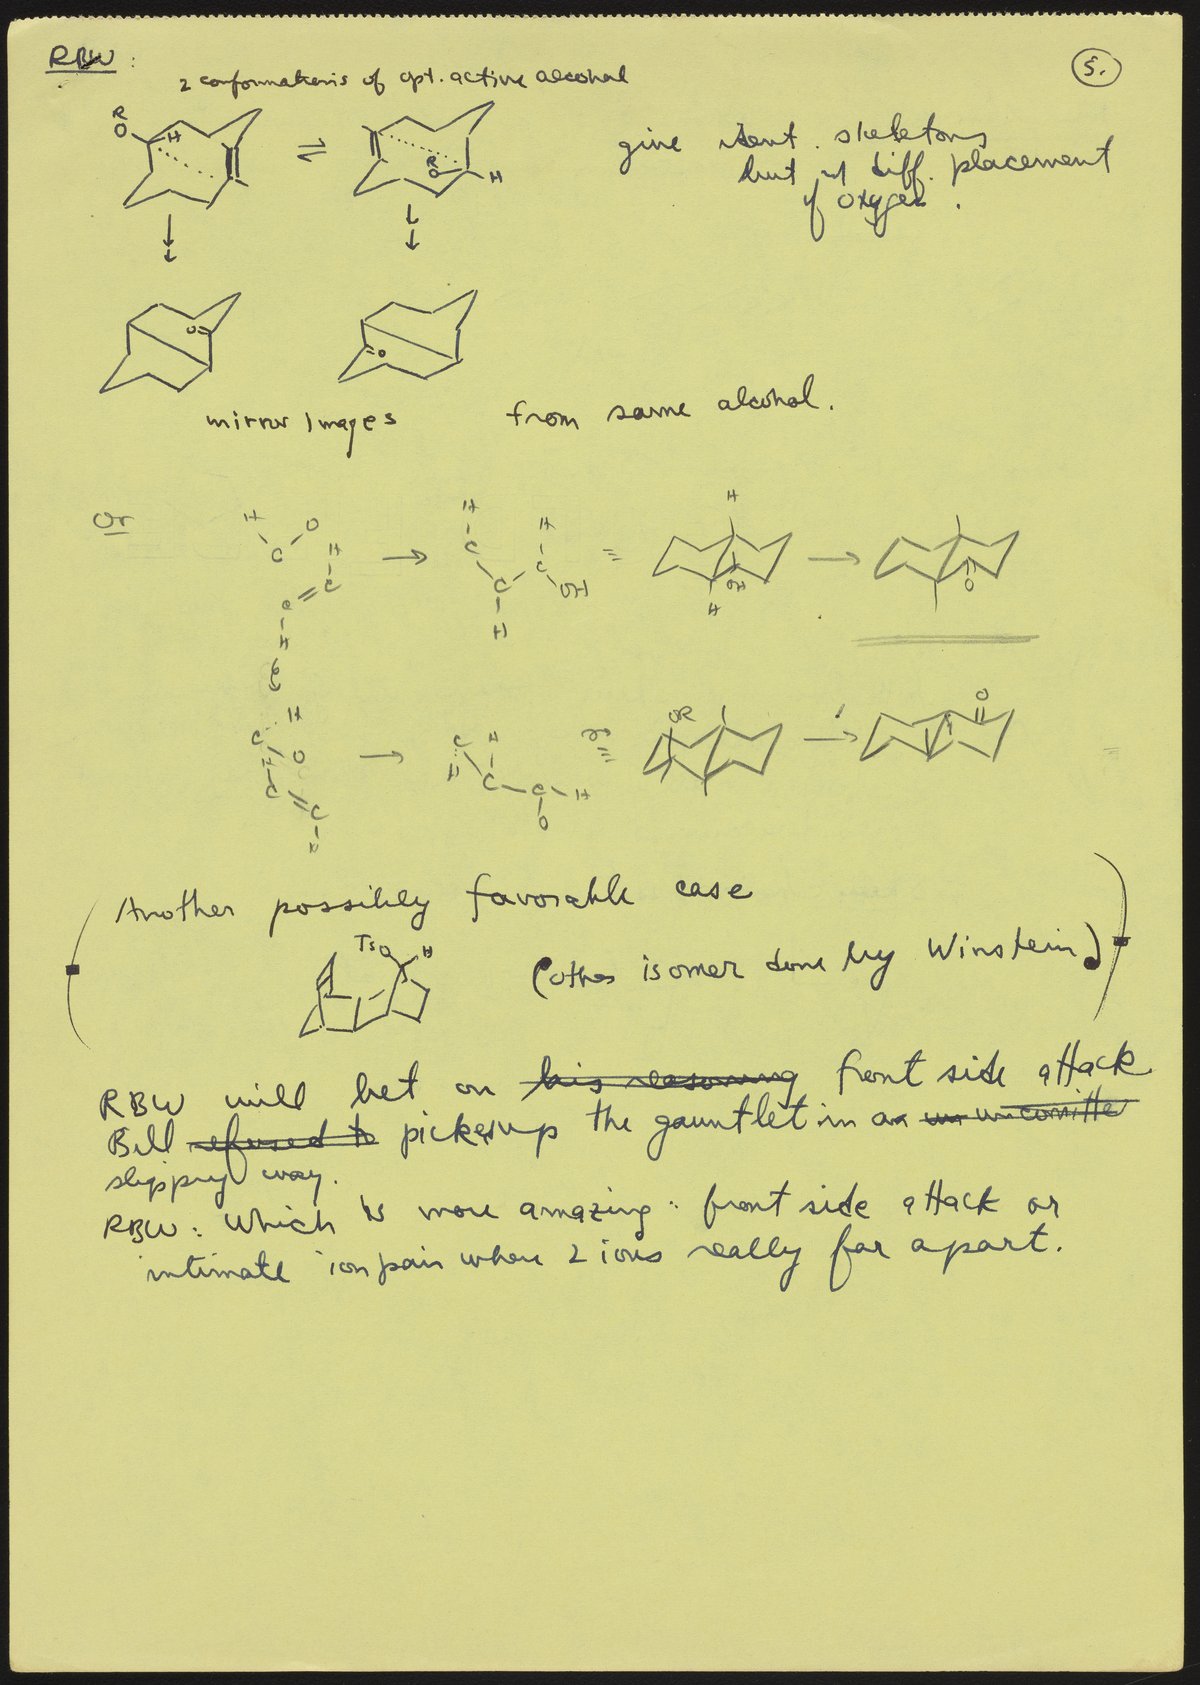 RBW:
5.
2 conformations of opt. active alcohol
R
O
H
⇌
R
O
H
give ident. skeletons
but w diff. placement
of oxygen.
O
O
mirror images from same alcohol.
Or
H
C
O
H
C
C
H
→
H
C
H
C
C
OH
H
≡
H
OH
H
→
O
H
C
O
C
C
H
→
C
H
H
C
C
H
O
≡
OR
→
O
Another possibly favorable case
TsO
H
(other isomer done by Winstein)
RBW will bet on his reasoning front side attack
Bill refused to picked up the gauntlet in a
slippery way.
RBW: Which is more amazing: front side attack or
intimate ion pair where 2 ions really far apart.